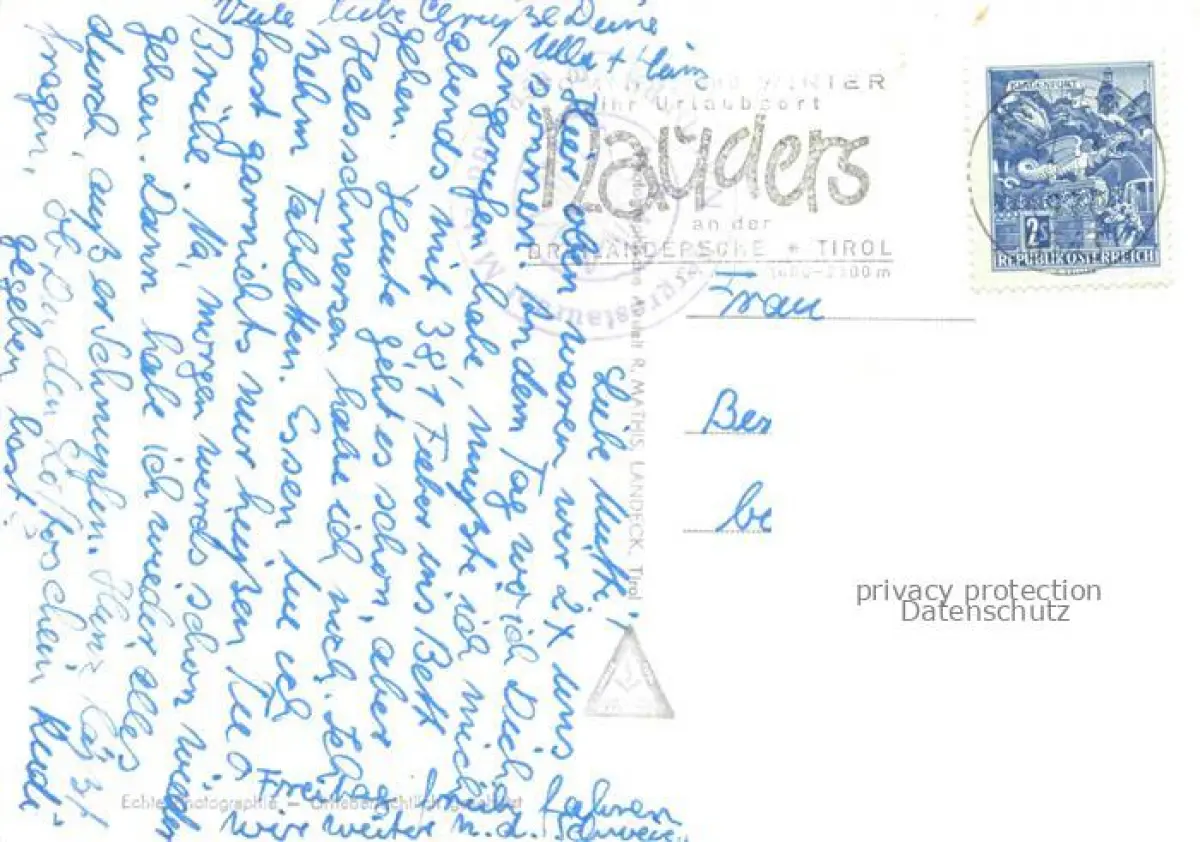 Liebe Mutti,
hier oben waren wir 2x uns
besonnen. An dem Tag wo ich Dich
angerufen habe, mußte ich mich
abends mit 38,1 Fieber ins Bett
gehen. Heute geht es schon, aber
Halsschmerzen habe ich noch.
nehm Tabletten. Essen tue ich
fast garnichts nur heißen Tee o
Brühe. Na, morgen werds schon wieder
gehen. Dann habe ich wieder alles
durch, außer Schnupfen. Heinz läßt
fragen, ob Du den Rudi
gegeben hast?
Freitag früh fahren
wir weiter n. d. Schweiz.
Viele liebe Grüße Deine
Ulla + Heinz
WINTER
Ihr Urlaubsort
Nauders
an der
DREILÄNDERECKE * TIROL
1400-2300 m
KLAGENFURT
2S
REPUBLIK ÖSTERREICH
Frau
Ber
be
R. MATHIS, LANDECK, Tirol
Echte Photographie – Urheberrechtlich geschützt
privacy protection
Datenschutz